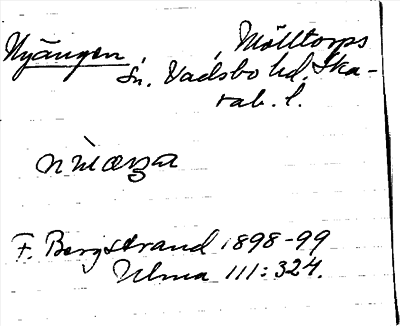 Nyängen, Mölltorps
sn. Vadsbo hd. Ska-
rab. l.
F. Bergstrand 1898-99
Ulma 111:324.